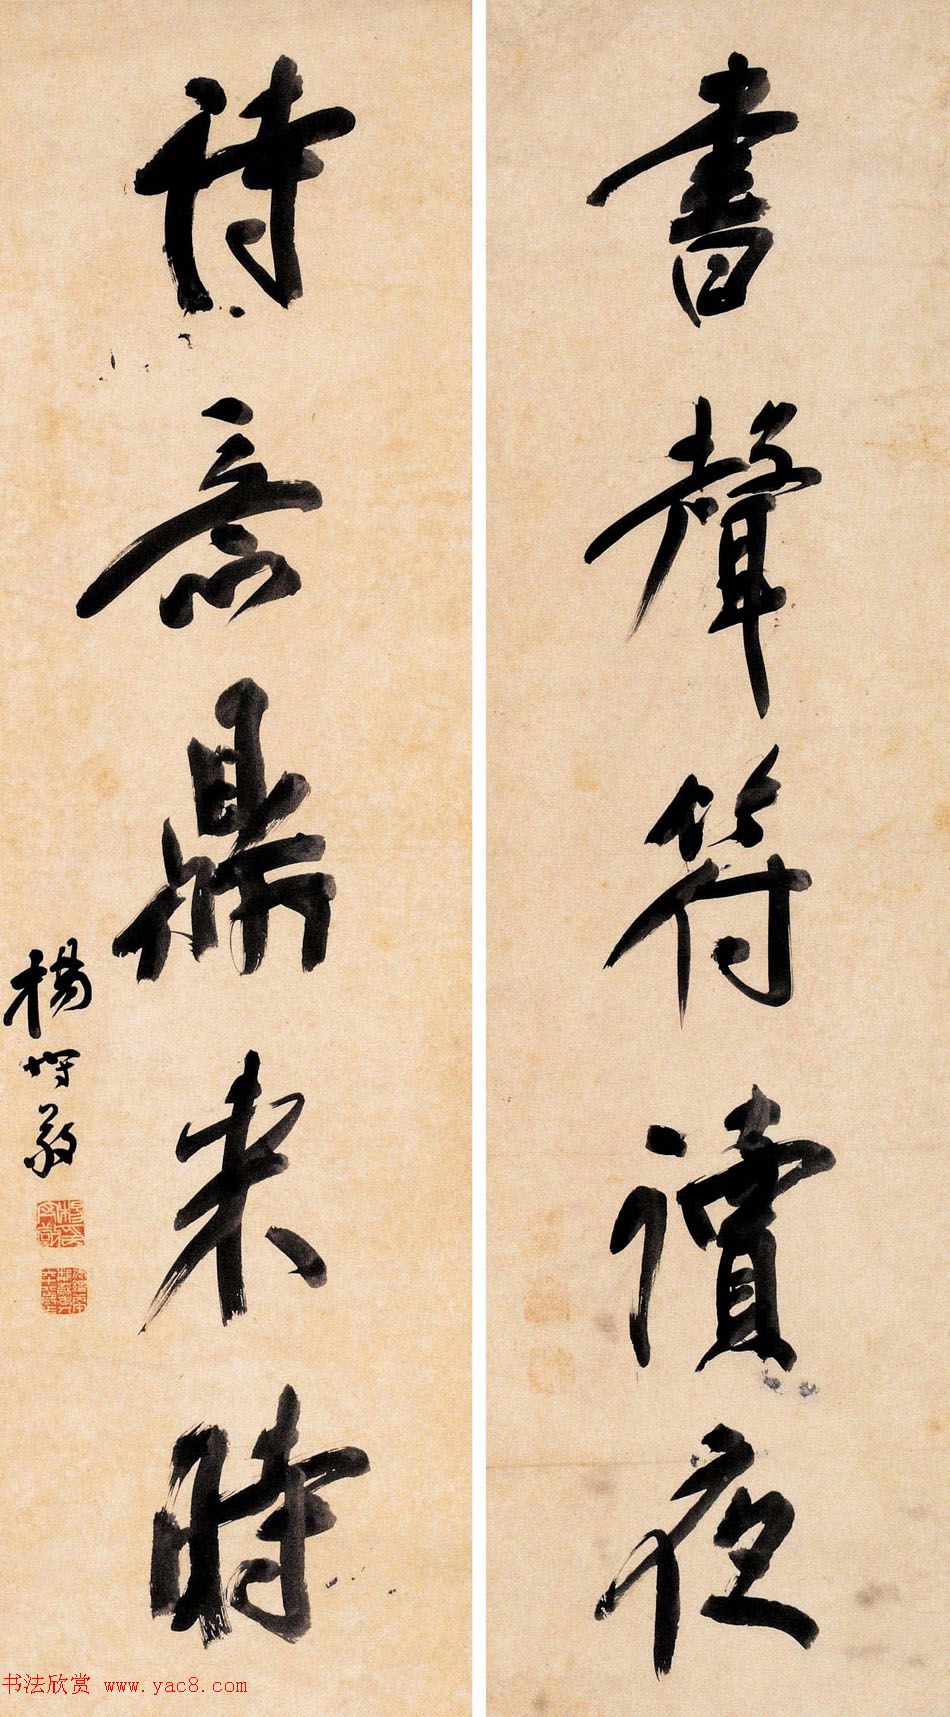 書聲符讀夜
詩意鼎来時
楊守敬
书法欣赏 www.yac8.com